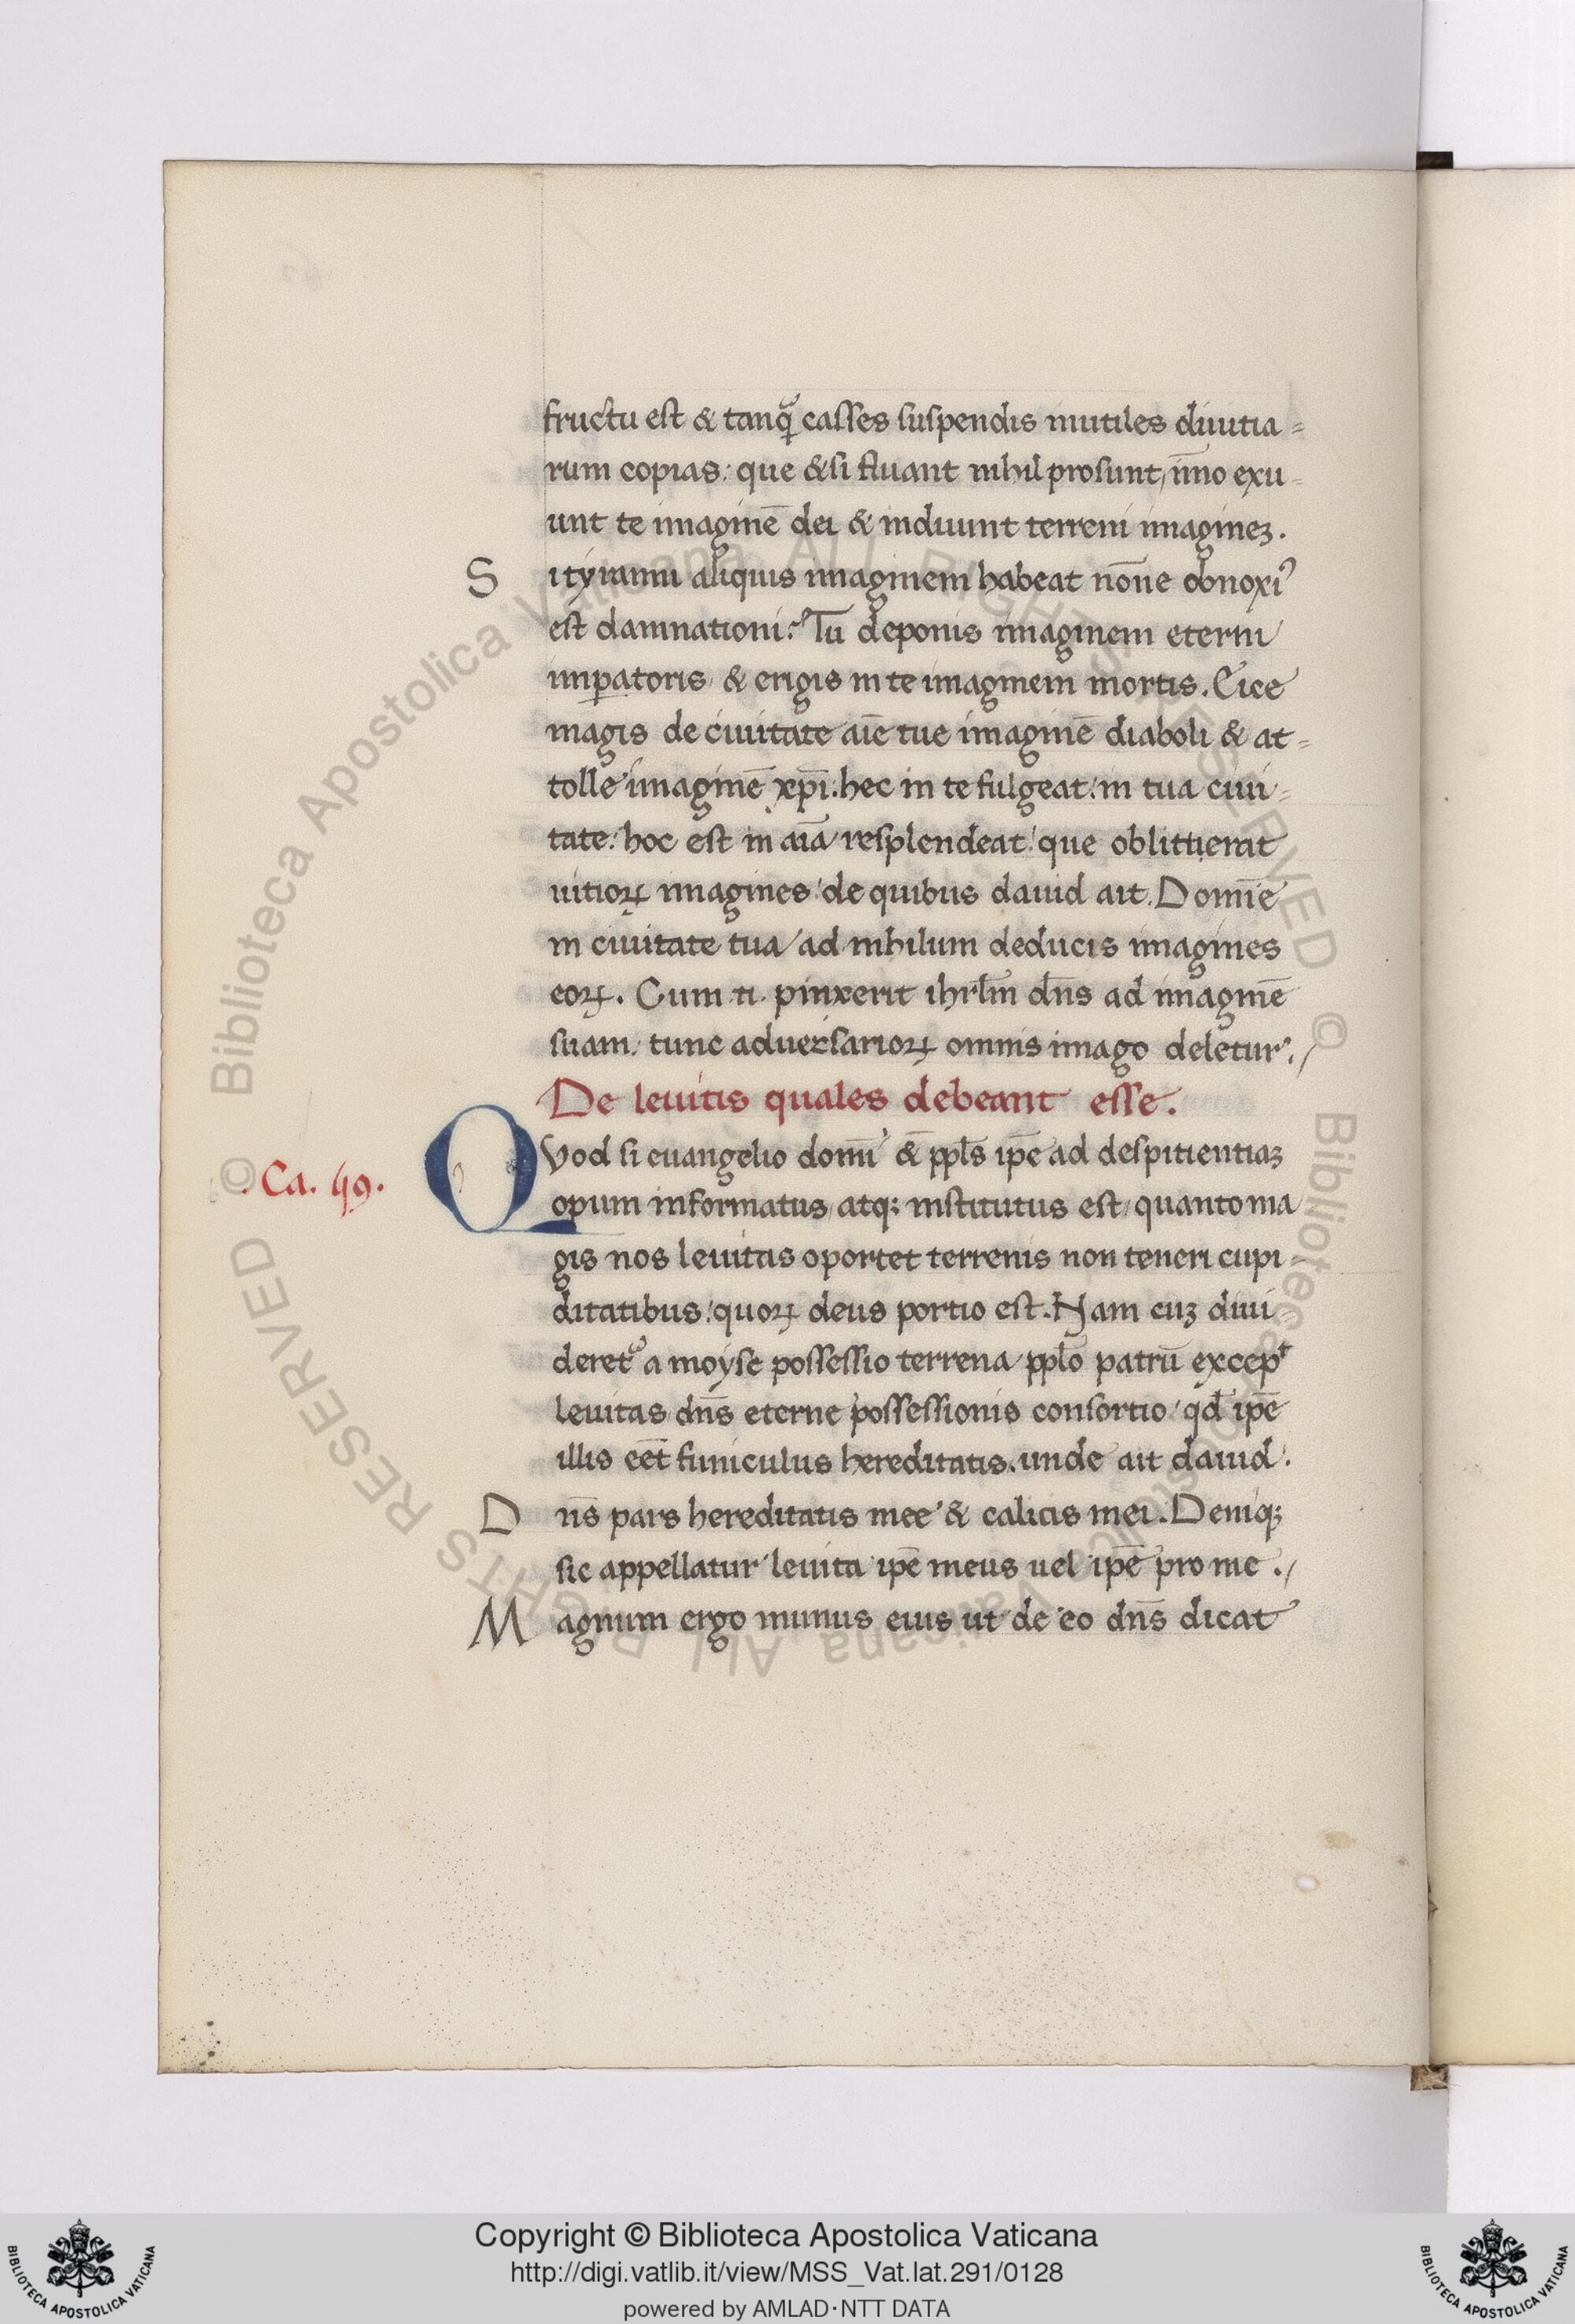 fructu est & tanq̃ casses suspendis inutiles diuitia=
rum copias: que &si fluant nihil prosunt, īmo exu=
unt te imaginē dei & induunt terreni imagineꝫ.
S i tyranni aliquis imaginem habeat nōne obnoxiꝰ
est damnationi? Tu deponis imaginem eterni
imꝑatoris & erigis in te imaginem mortis. Eice
magis de ciuitate aīe tue imaginē diaboli & at=
tolle imaginē xp̄i. hec in te fulgeat: in tua ciui=
tate: hoc est in aīa resplendeat: que oblitterat
uitioꝝ imagines de quibus dauid ait. Domīe
in ciuitate tua ad nihilum deducis imagines
eoꝝ. Cum .n. pinxerit ihrl̄m dn̄s ad imaginē
suam: tunc aduersarioꝝ omnis imago deletur.
De leuitis quales debeant esse.
.Ca. 49.
QVod si euangelio domī & ppl̄s ip̄e ad despitientiaꝫ
opum informatus atqꝫ institutus est quanto ma
gis nos leuitas oportet terrenis non teneri cupi=
ditatibus: quoꝝ deus portio est. Nam cuꝫ diui
deret᷑ a moyse possessio terrena ppl̄o patrū excepᵗ
leuitas dn̄s eterne possessionis consortio qd̄ ip̄e
illis eēt funiculus hereditatis. unde ait dauid.
D n̄s pars hereditatis mee & calicis mei. Deniqꝫ
sic appellatur leuita ip̄e meus uel ip̄e pro me.
M agnum ergo munus eius ut de eo dn̄s dicat
© Biblioteca Apostolica Vaticana ALL RIGHTS RESERVED © Biblioteca Apostolica Vaticana ALL RIGHTS RESERVED
Copyright © Biblioteca Apostolica Vaticana
http://digi.vatlib.it/view/MSS_Vat.lat.291/0128
powered by AMLAD·NTT DATA
BIBLIOTECA APOSTOLICA VATICANA
BIBLIOTECA APOSTOLICA VATICANA